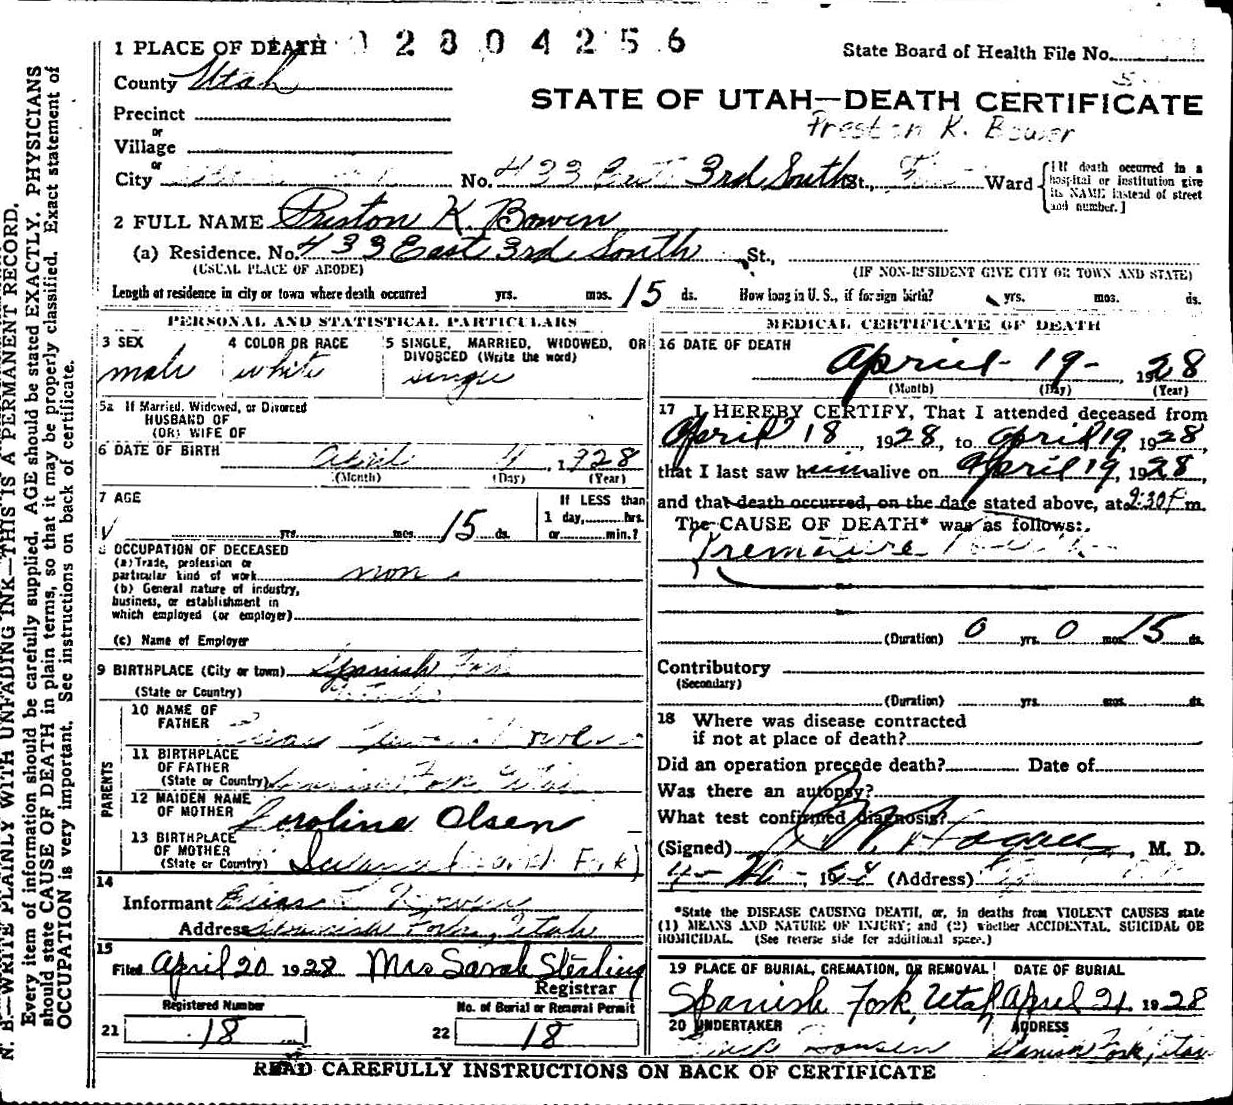 1 PLACE OF DEATH 2804256
State Board of Health File No.
County Utah
STATE OF UTAH—DEATH CERTIFICATE
Precinct
Preston K. Bower
or
Village
or
City No. 433 East 3rd South St., Ward
[If death occurred in a
hospital or institution give
its NAME instead of street
and number.]
2 FULL NAME Preston K. Bowen
(a) Residence. No. 433 East 3rd South St.,
(USUAL PLACE OF ABODE) (IF NON-RESIDENT GIVE CITY OR TOWN AND STATE)
Length of residence in city or town where death occurred yrs. mos. 15 ds. How long in U. S., if foreign birth? yrs. mos. ds.
PERSONAL AND STATISTICAL PARTICULARS
3 SEX 4 COLOR OR RACE 5 SINGLE, MARRIED, WIDOWED, OR
DIVORCED (Write the word)
male white single
5a If Married, Widowed, or Divorced
HUSBAND OF
(OR) WIFE OF
6 DATE OF BIRTH April 4, 1928
(Month) (Day) (Year)
7 AGE If LESS than
1 day, hrs.
yrs. mos. 15 ds. or min.?
8 OCCUPATION OF DECEASED
(a) Trade, profession or
particular kind of work non
(b) General nature of industry,
business, or establishment in
which employed (or employer)
(c) Name of Employer
9 BIRTHPLACE (City or town) Spanish Fork
(State or Country)
PARENTS
10 NAME OF
FATHER
11 BIRTHPLACE
OF FATHER
(State or Country) Fork Utah
12 MAIDEN NAME
OF MOTHER Caroline Olsen
13 BIRTHPLACE
OF MOTHER
(State or Country) Fork)
14
Informant Elias Bowen
Address Spanish Fork, Utah
15
Filed April 20 1928 Mrs Sarah Sterling
Registrar
Registered Number No. of Burial or Removal Permit
21 18 22 18
MEDICAL CERTIFICATE OF DEATH
16 DATE OF DEATH
April 19 - 1928
(Month) (Day) (Year)
17 I HEREBY CERTIFY, That I attended deceased from
April 18 1928, to April 19, 1928,
that I last saw him alive on April 19, 1928,
and that death occurred, on the date stated above, at 9:30 P m.
The CAUSE OF DEATH* was as follows:
Premature Birth
(Duration) 0 yrs. 0 mos. 15 ds.
Contributory
(Secondary)
(Duration) yrs. mos. ds.
18 Where was disease contracted
if not at place of death?
Did an operation precede death? Date of
Was there an autopsy?
What test confirmed diagnosis?
(Signed) Hagan, M. D.
4- 19 (Address)
*State the DISEASE CAUSING DEATH, or, in deaths from VIOLENT CAUSES state
(1) MEANS AND NATURE OF INJURY; and (2) whether ACCIDENTAL, SUICIDAL OR
HOMICIDAL. (See reverse side for additional space.)
19 PLACE OF BURIAL, CREMATION, OR REMOVAL DATE OF BURIAL
Spanish Fork, Utah April 21 1928
20 UNDERTAKER ADDRESS
Spanish Fork, Utah
READ CAREFULLY INSTRUCTIONS ON BACK OF CERTIFICATE
N. B.—WRITE PLAINLY WITH UNFADING INK—THIS IS A PERMANENT RECORD.
Every item of information should be carefully supplied. AGE should be stated EXACTLY. PHYSICIANS
should state CAUSE OF DEATH in plain terms, so that it may be properly classified. Exact statement of
OCCUPATION is very important. See instructions on back of certificate.